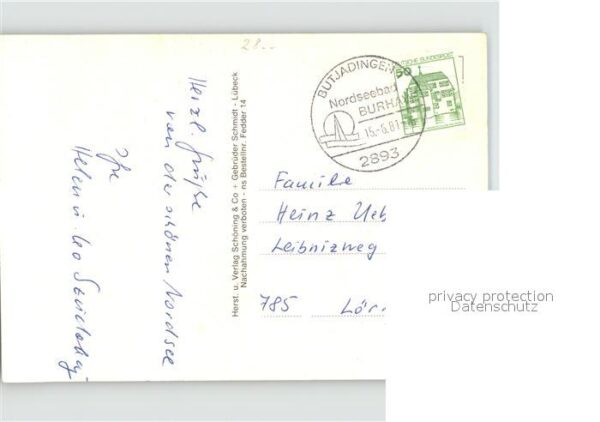 28.-
Herzl. Grüße
von der schönen Nordsee
Ihre
Helen u. Leo
Herst. u. Verlag Schöning & Co + Gebrüder Schmidt - Lübeck
Nachahmung verboten - ns Bestellnr. Fedder 14
BUTJADINGEN
Nordseebad
BURHA
15.-6.81
2893
TSCHE BUNDESPOST
50
Familie
Heinz Ueb
Leibnizweg
785 Lör
privacy protection
Datenschutz